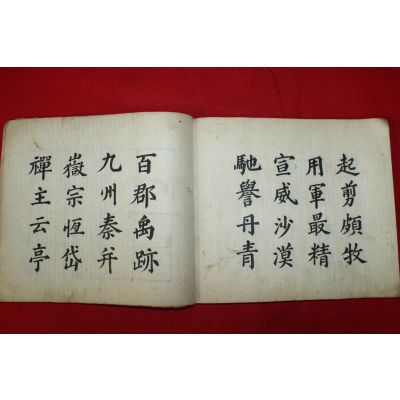 起剪頗牧
用軍最精
宣威沙漠
馳譽丹青
百郡禹跡
九州秦并
嶽宗恆岱
禪主云亭